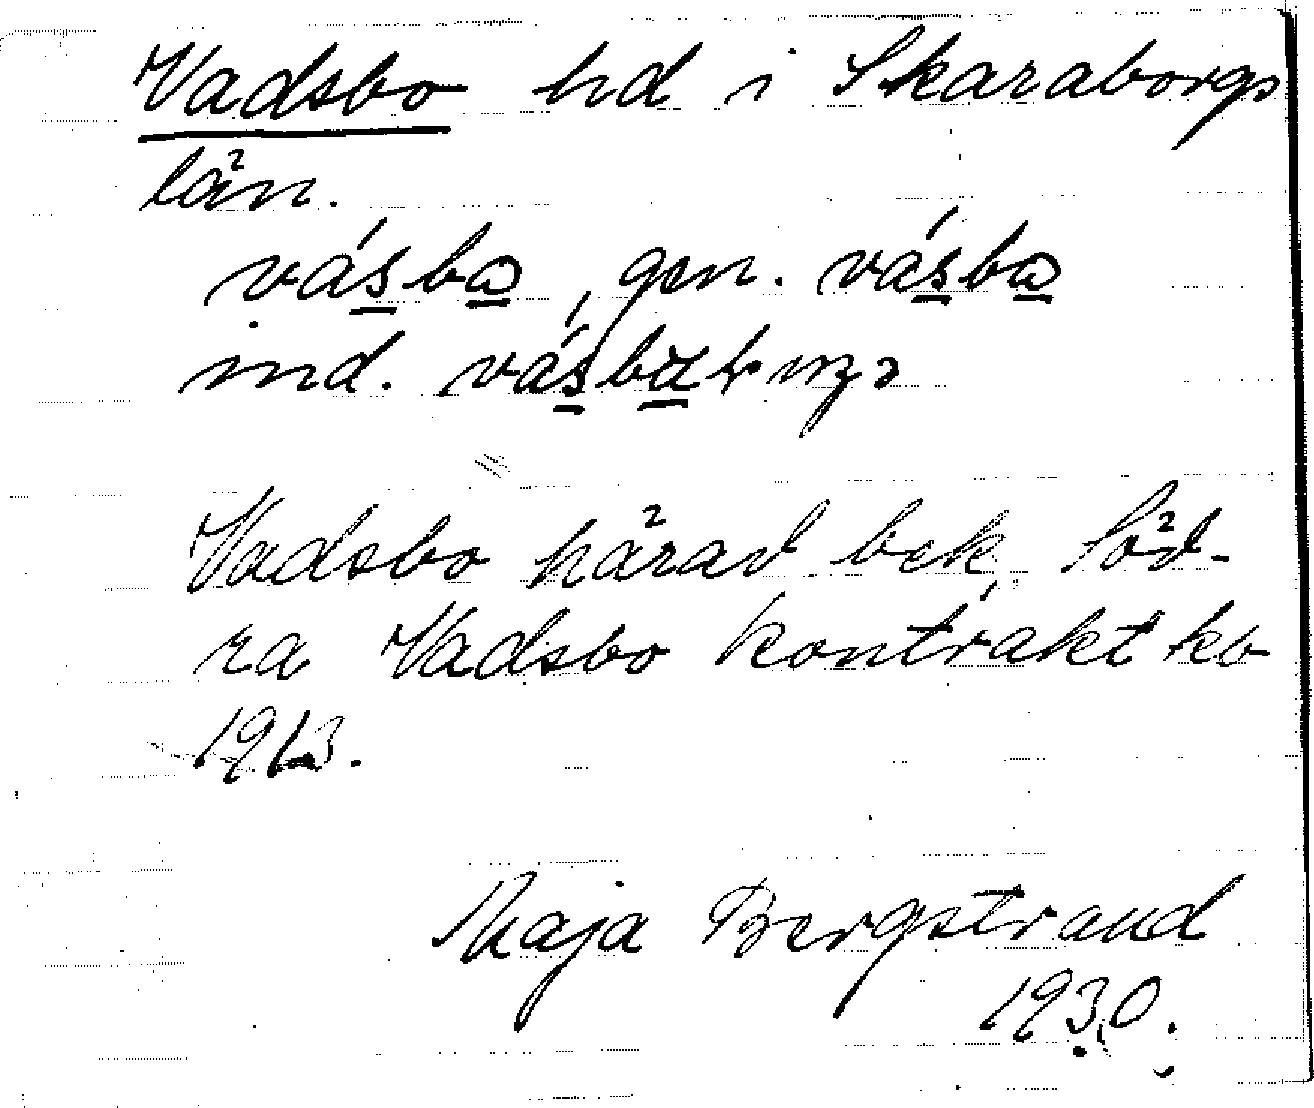 Vadsbo hd i Skaraborgs
län.
vásba, gen. vásba
ind.
Vadsbo härad bek, Söd-
ra Vadsbo kontrakt kb
1913.
Maja Bergstrand
1930.